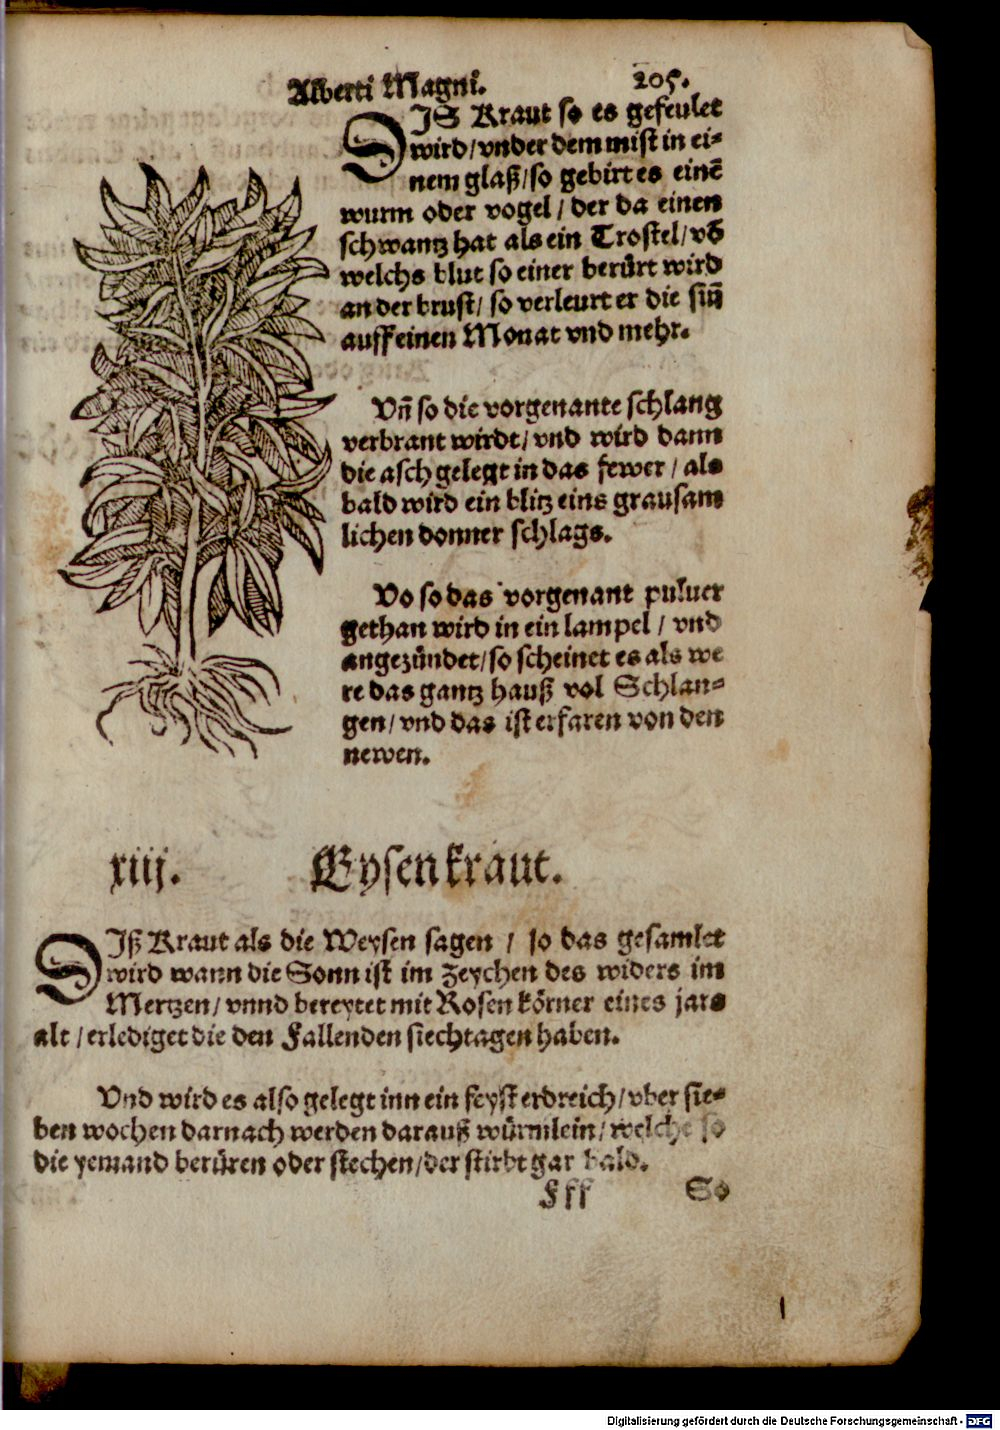 Alberti Magni. 205.
DIS Kraut so es gefeulet
wird/vnder dem mist in ei-
nem glaß/so gebirt es einē
wurm oder vogel/der da einen
schwantz hat als ein Trostel/võ
welchs blut so einer berürt wird
an der brust/so verleurt er die siñ
auff einen Monat vnd mehr.
Vñ so die vorgenante schlang
verbrant wirdt/vnd wird dann
die asch gelegt in das fewer/als
bald wird ein blitz eins grausam
lichen donner schlags.
Vo so das vorgenant puluer
gethan wird in ein lampel/vnd
angezündet/so scheinet es als we
re das gantz hauß vol Schlan-
gen/vnd das ist erfaren von den
newen.
xiij. Eysenkraut.
DIß Kraut als die Weysen sagen/so das gesamlet
wird wann die Sonn ist im Zeychen des widers im
Mertzen/vnnd bereytet mit Rosen körner eines jars
alt/erlediget die den Fallenden siechtagen haben.
Vnd wird es also gelegt inn ein feyst erdreich/vber sie-
ben wochen darnach werden darauß würmlein/welche so
die yemand berüren oder stechen/der stirbt gar bald.
Fff So
Digitalisierung gefördert durch die Deutsche Forschungsgemeinschaft - DFG